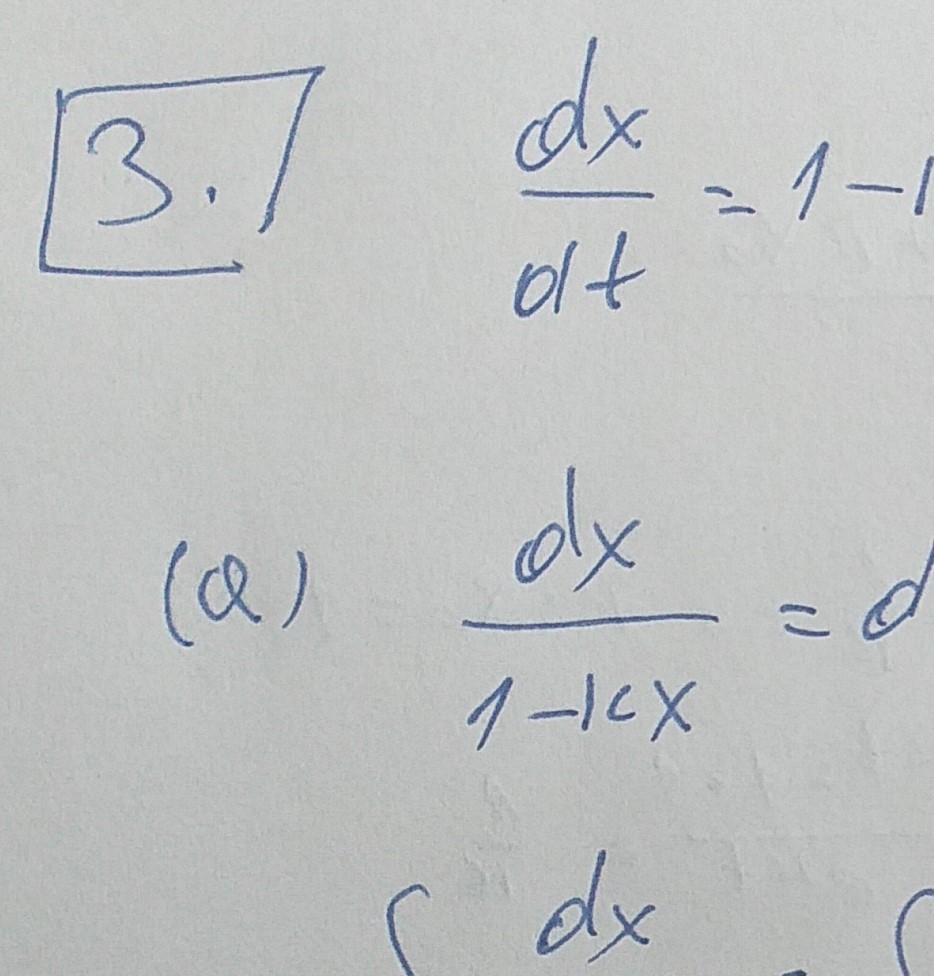 3. dx/dt = 1 -
(a) dx/(1 - kx) = d
∫ dx